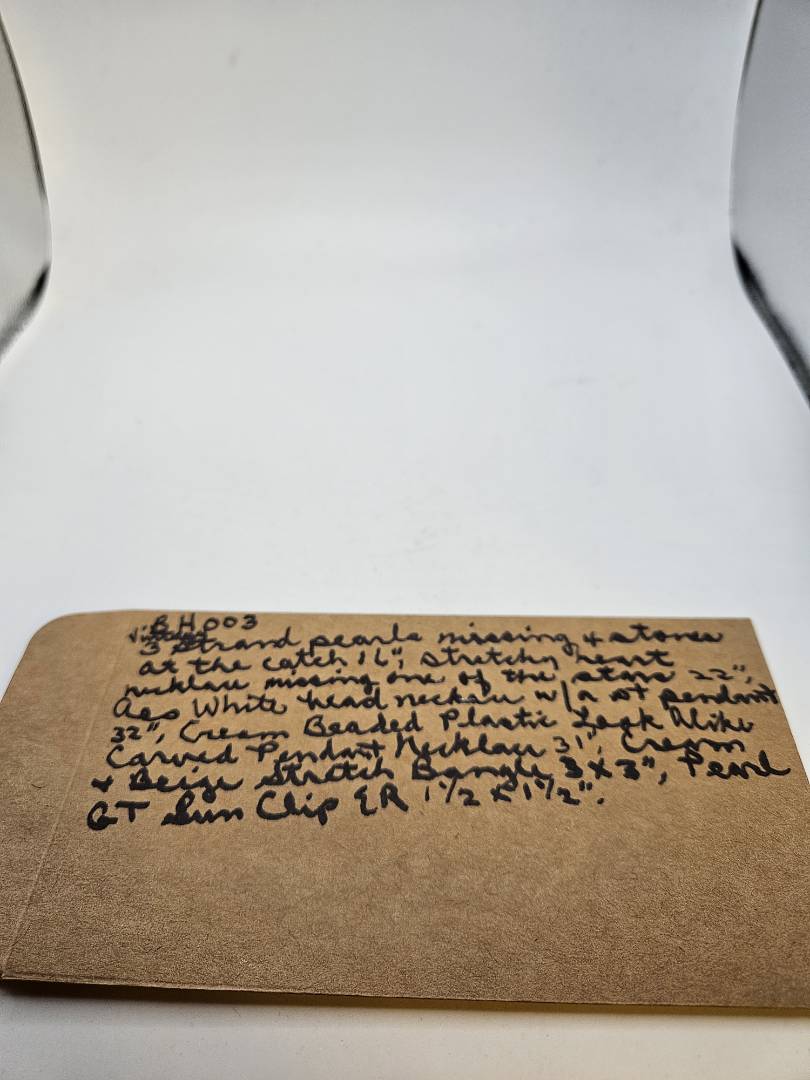 BH003
Vintage
3 Strand pearls missing 4 stones
at the catch 16", Stretchy heart
necklace missing one of the stars 22",
White bead necklace w/a st pendant
32", Cream Beaded Plastic Look Alike
Carved Pendant Necklace 31", Cream
+ Beige Stretch Bangle 3 x 3", Pearl
GT Sun Clip ER 1 1/2 x 1 1/2".